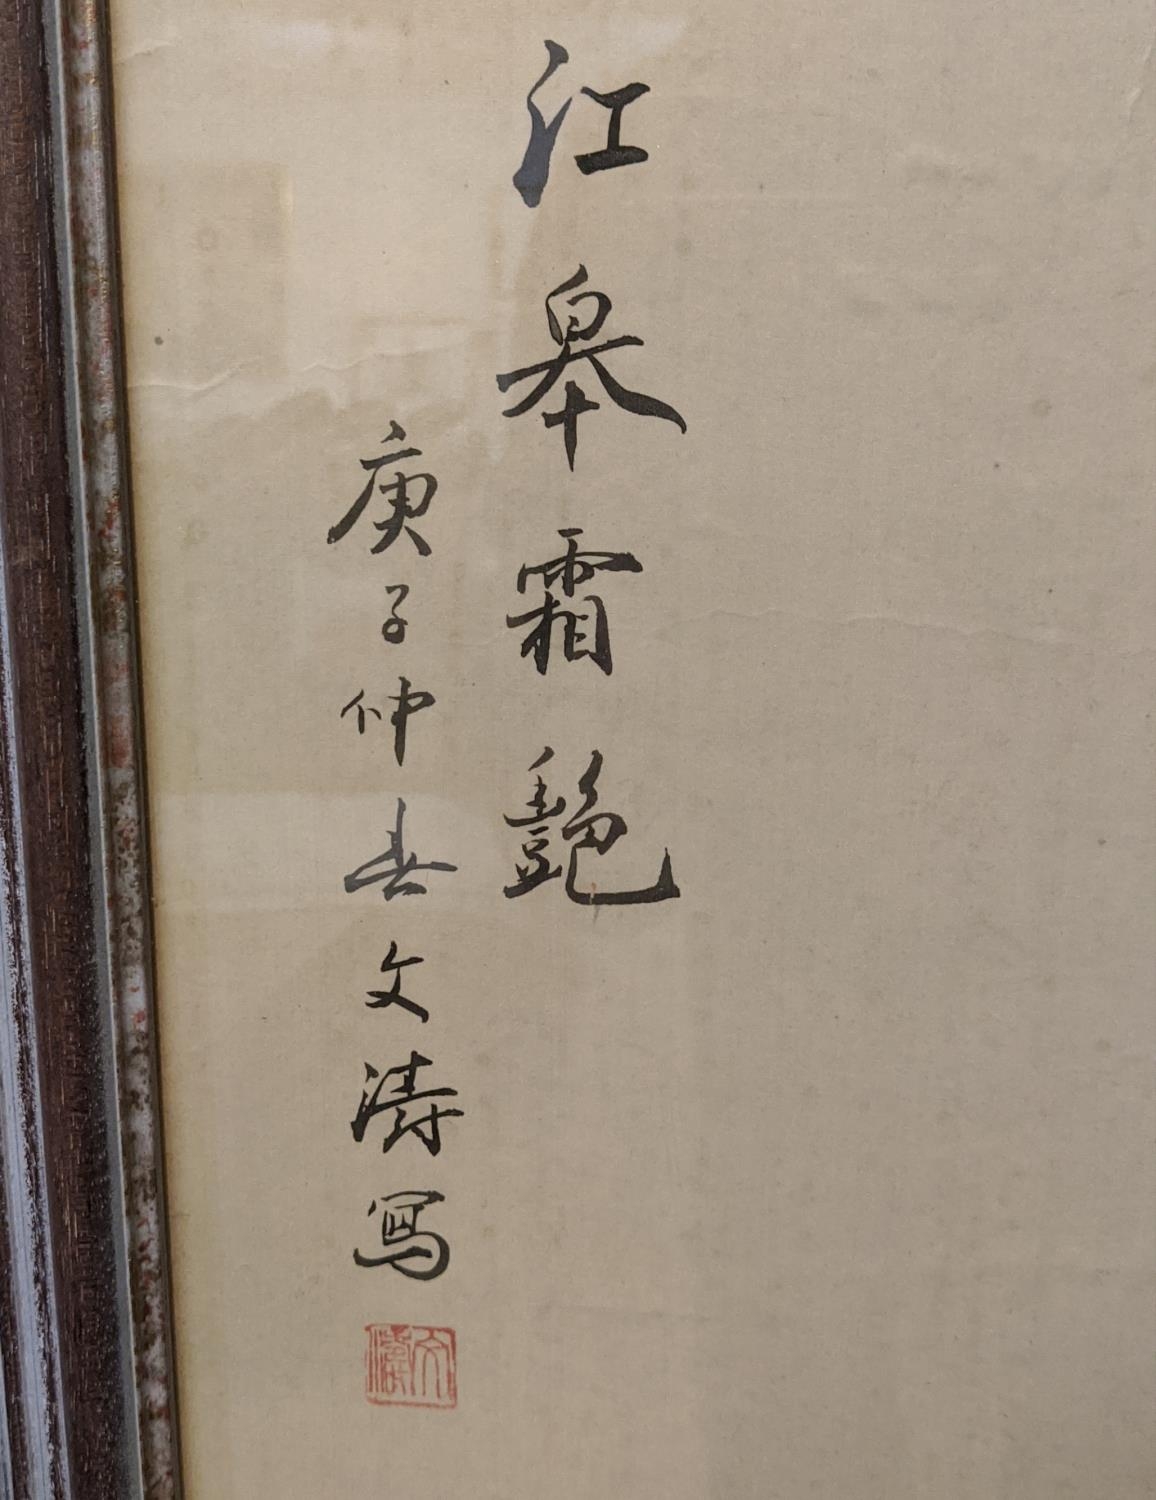 江皋霜艷
庚子仲春文濤寫
文濤